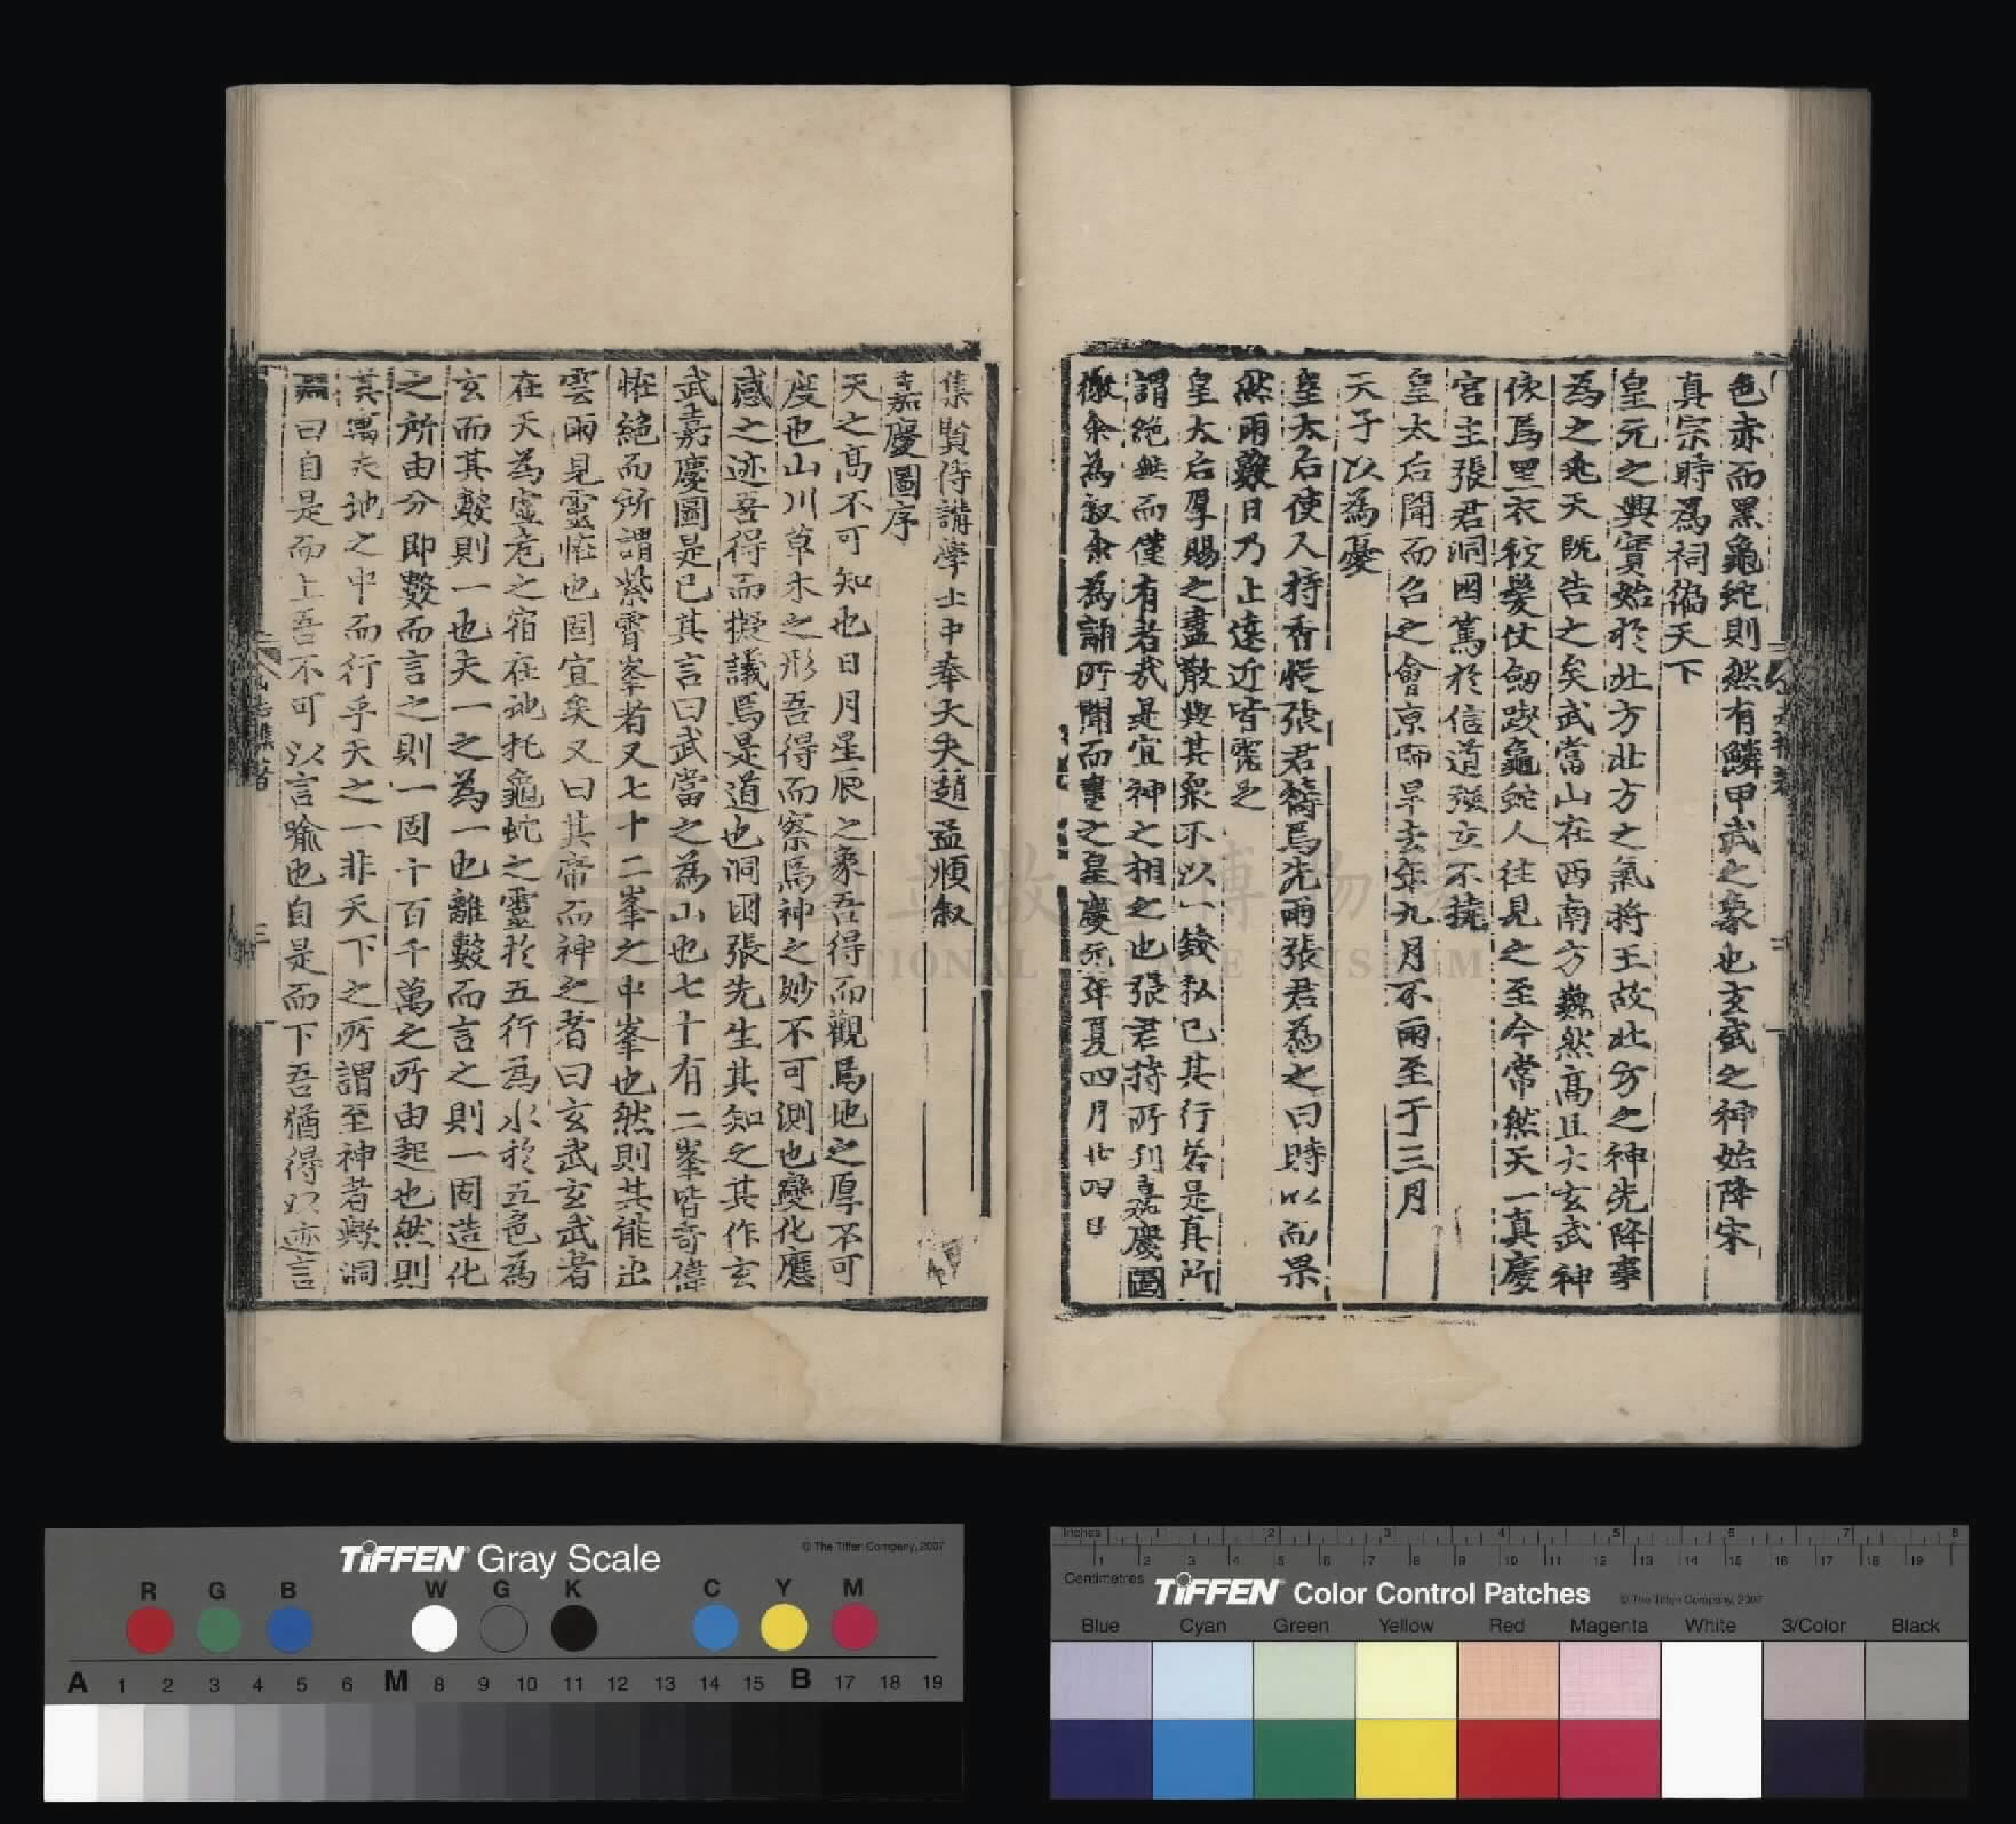 色亦而黑龜蛇則然有鱗甲武之象也玄武之神始降宋
真宗時為祠徧天下
皇元之興實始於北方北方之氣將王故北方之神先降事
為之兆天既告之矣武當山在西南方巍然高且大玄武神
依焉黑衣被髮仗劒踆龜蛇人往見之至今常然天一真慶
宮主張君洞囦篤於信道強立不撓
皇太后聞而召之會京師旱去年九月不雨至于三月
天子以為憂
皇太后使人持香從張君禱焉先雨張君為之曰時以而果
然雨數日乃止遠近皆霑足
皇太后厚賜之盡散與其衆不以一錢私已其行若是真所
謂絕無而僅有者哉是宜神之相之也張君持所刊嘉慶圖
徵余為叙余為誦所聞而書之皇慶元年夏四月廿四日
集賢侍講學士中奉大夫趙孟頫叙
嘉慶圖序
天之高不可知也日月星辰之象吾得而觀焉地之厚不可
度也山川草木之形吾得而察焉神之妙不可測也變化應
感之迹吾得而擬議焉是道也洞囦張先生其知之其作玄
武嘉慶圖是已其言曰武當之為山也七十有二峯皆奇偉
恠絕而所謂紫霄峯者又七十二峯之中峯也然則其能出
雲雨見靈恠也固宜矣又曰其帝而神之者曰玄武玄武者
在天為虛危之宿在地托龜蛇之靈於五行為水於五色為
玄而其數則一也夫一之為一也離數而言之則一固造化
之所由分即數而言之則一固十百千萬之所由起也然則
其寓夫地之中而行乎天之一非天下之所謂至神者歟洞
囦曰自是而上吾不可以言喻也自是而下吾猶得以迹言
國立故宮博物院
NATIONAL PALACE MUSEUM
TIFFEN Gray Scale
© The Tiffen Company, 2007
R G B W G K C Y M
A 1 2 3 4 5 6 M 8 9 10 11 12 13 14 15 B 17 18 19
Inches 1 2 3 4 5 6 7 8
1 2 3 4 5 6 7 8 9 10 11 12 13 14 15 16 17 18 19
Centimetres
TIFFEN Color Control Patches
© The Tiffen Company, 2007
Blue Cyan Green Yellow Red Magenta White 3/Color Black